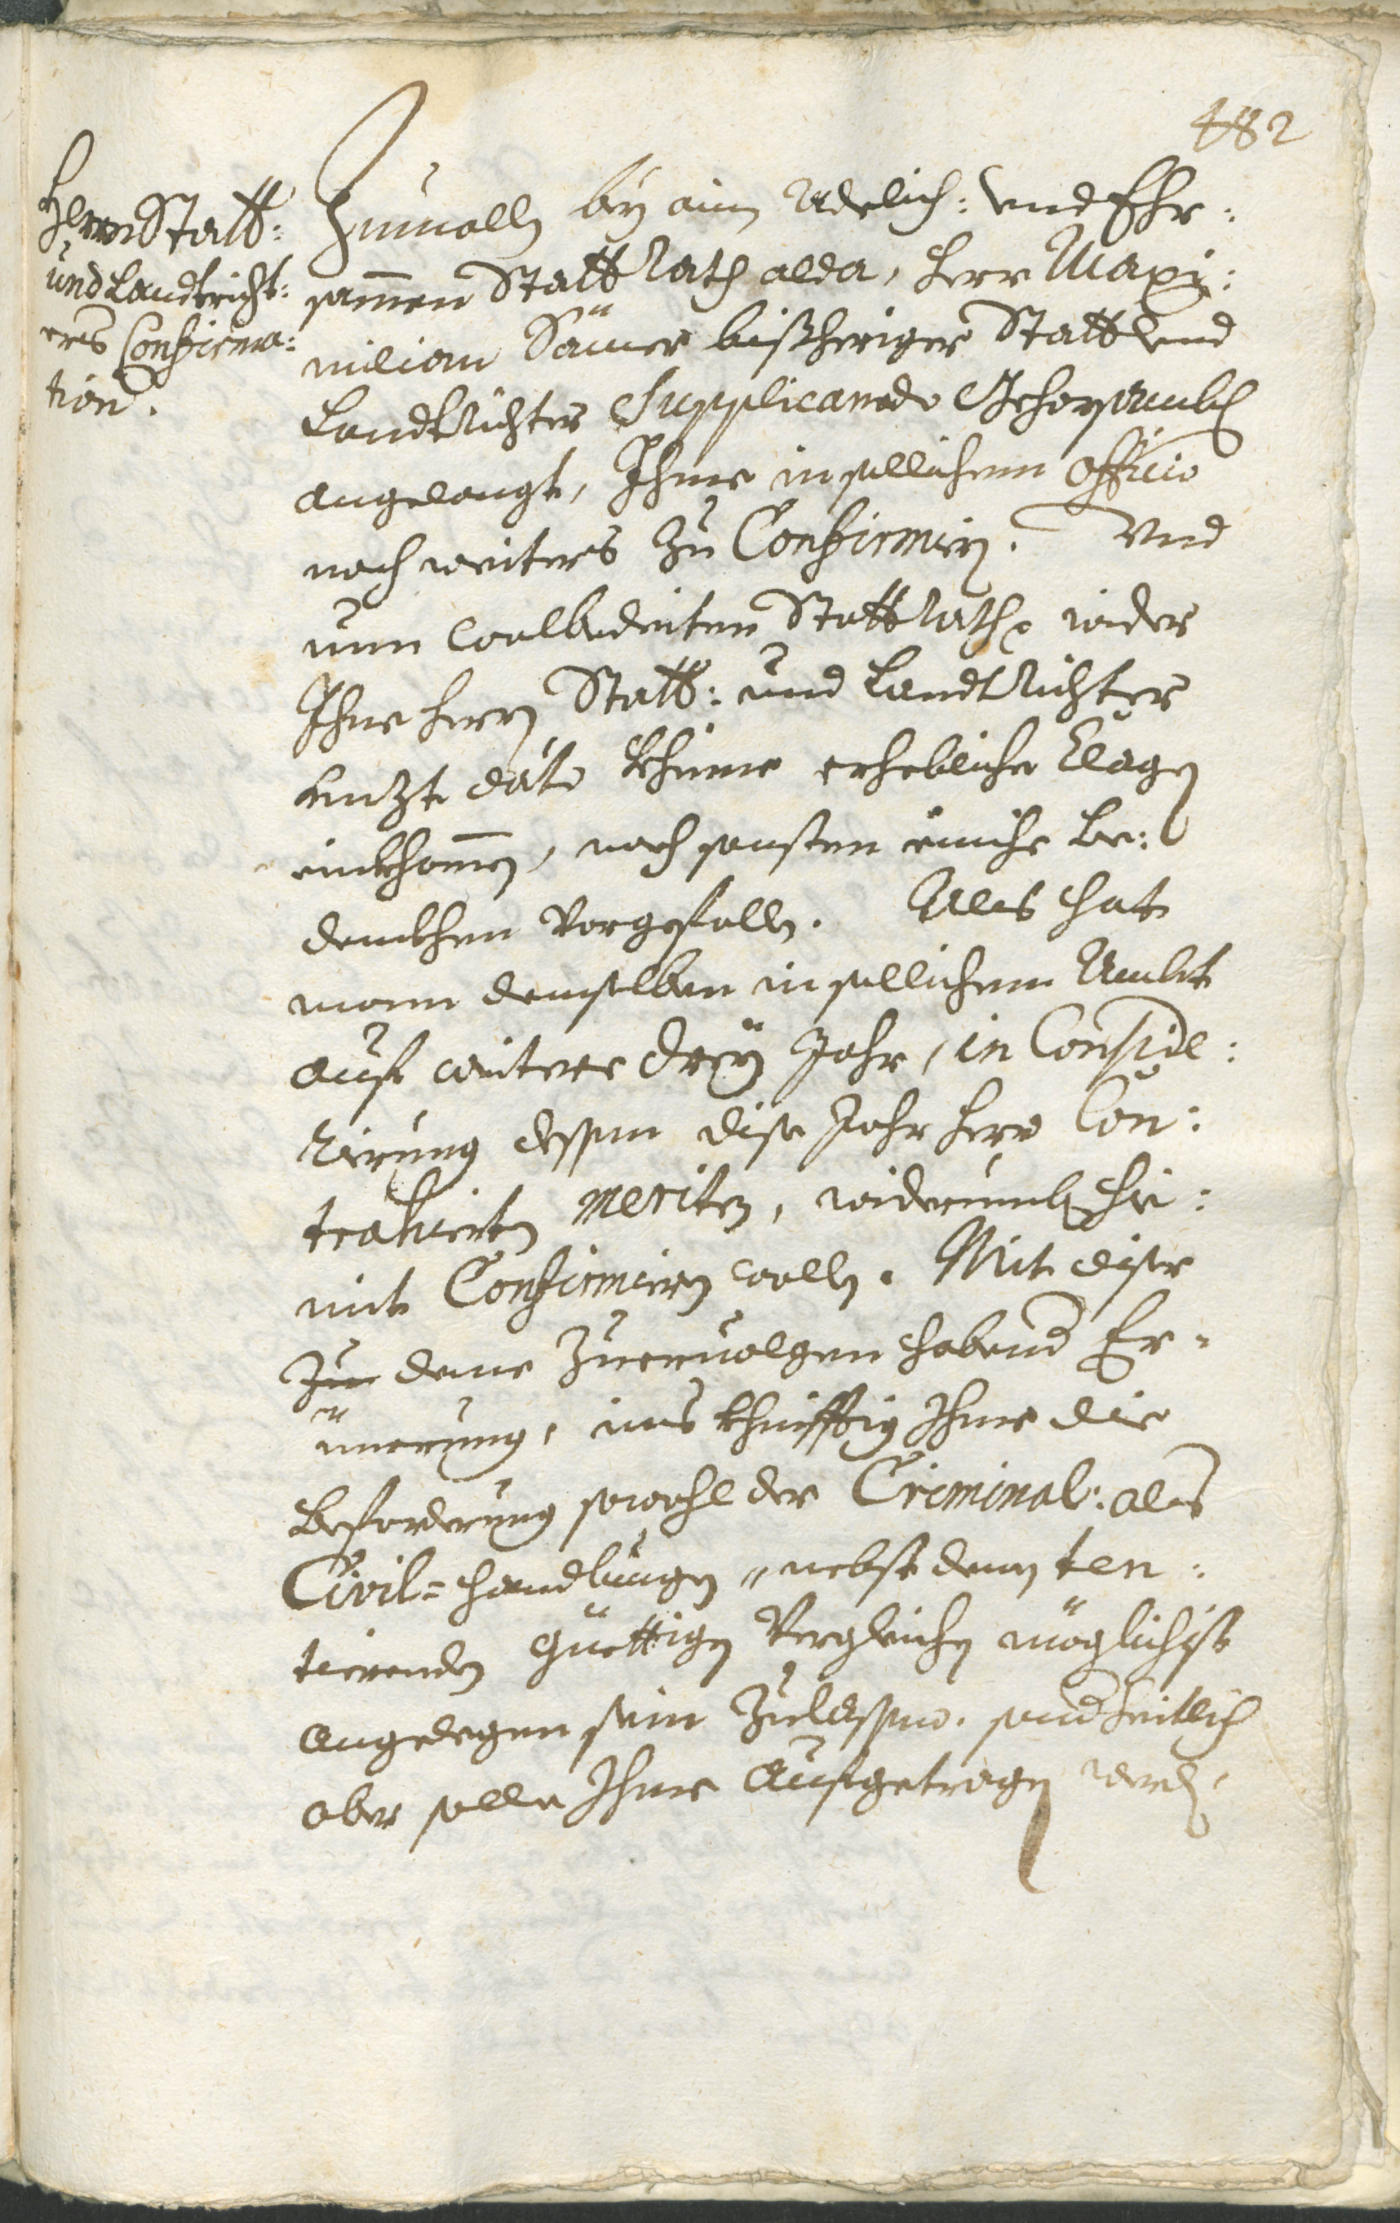 482
Herrn Statt:
und Landtricht:
ers Confirma:
tion.
Zumalln bey aim Adelich: vnd Ehr:
samen Statt Rath alda, herr Maxi:
milian Säuer bißheriger Statt vnd
Landtrichter Supplicando Gehorsamblich
angelangt, Ihme in sollichem Officio
noch weiters zu Confirmirn. Vnd
nun wolbedeiten Statt Rath wider
Ihne herrn Statt: und Landt Richter
hintzt dato khaine erhebliche Clagen
einkhomen, noch sonsten einiche be:
denkhen vorgefalln. Alls hat
mann demselben in sollichem Ambt
auf weitere drey Jahr, in Conside:
rierung dessen dise Jahr hero Con:
trahierten meriten, widerumb hie:
mit Confirmiern wolln. Mit diser
Zu deme Zuervolgen habend Er-
innerung, ins khünfftig Ihme die
beforderung sowohl der Criminal: als
Civil= handlungen, nebst denen ten:
tierenden güettigen Vergleichen möglichist
angelegen sein Zulassen. sonderheitlich
aber solle Ihme Aufgetragen werden,